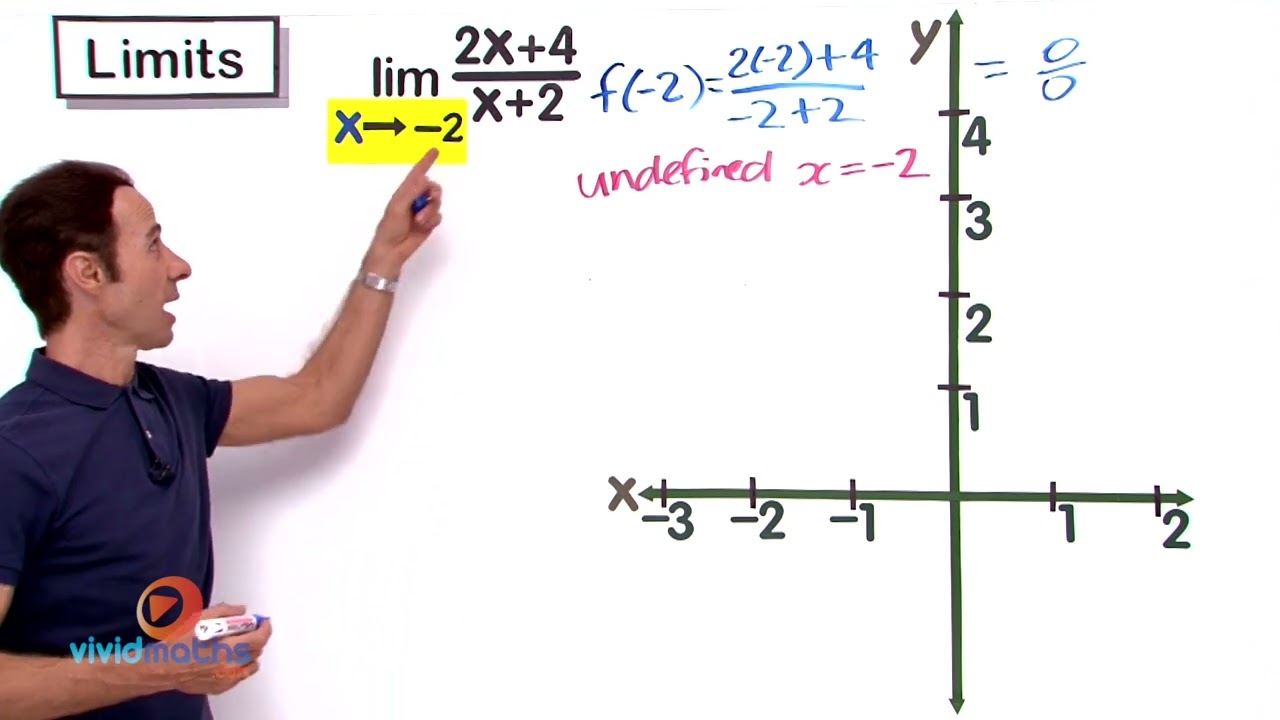 Limits
lim 2x+4 / x+2
x→ -2
f(-2) = 2(-2)+4 / -2+2 = 0/0
undefined x = -2
y
4
3
2
1
x
-3 -2 -1 1 2
vividmaths
.com